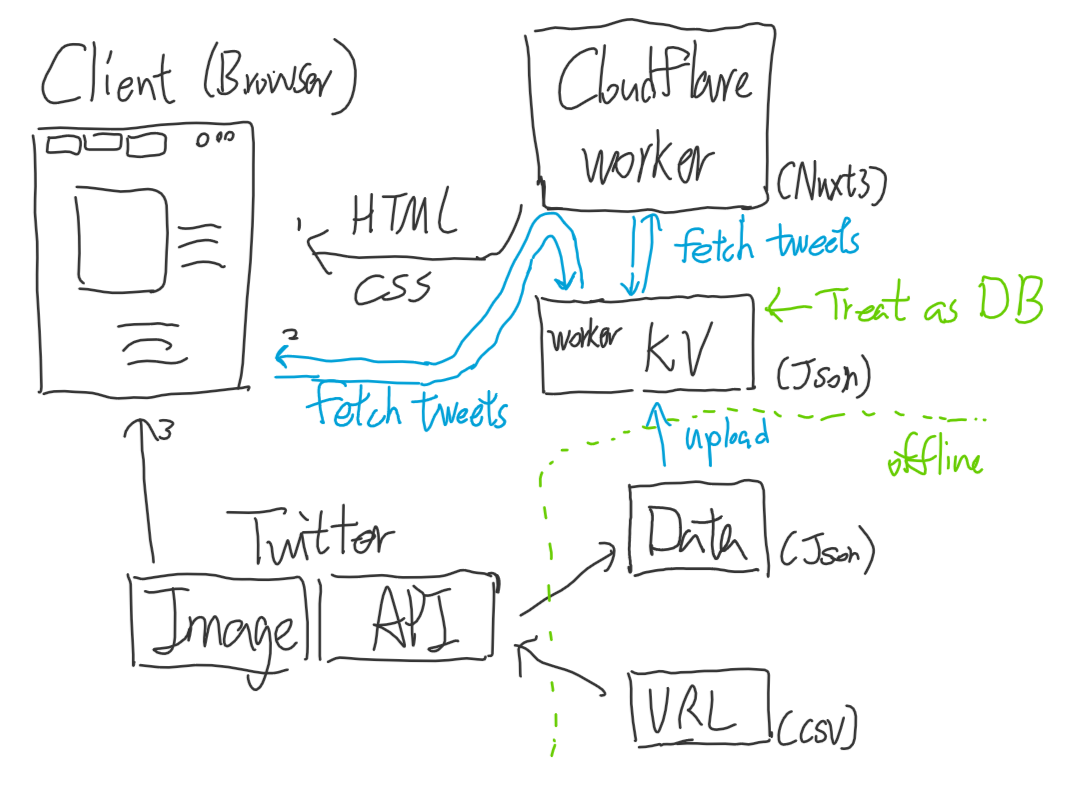 Client (Browser)
Cloudflare
worker
(Nuxt3)
1
HTML
CSS
fetch tweets
← Treat as DB
worker KV
(Json)
2
fetch tweets
upload
offline
3
Twitter
Image
API
Data
(Json)
URL
(CSV)